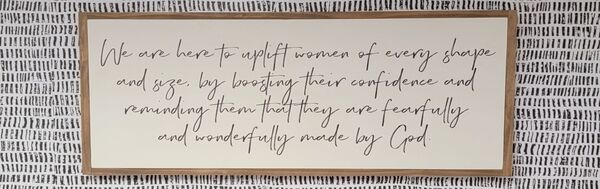 We are here to uplift women of every shape
and size, by boosting their confidence and
reminding them that they are fearfully
and wonderfully made by God.